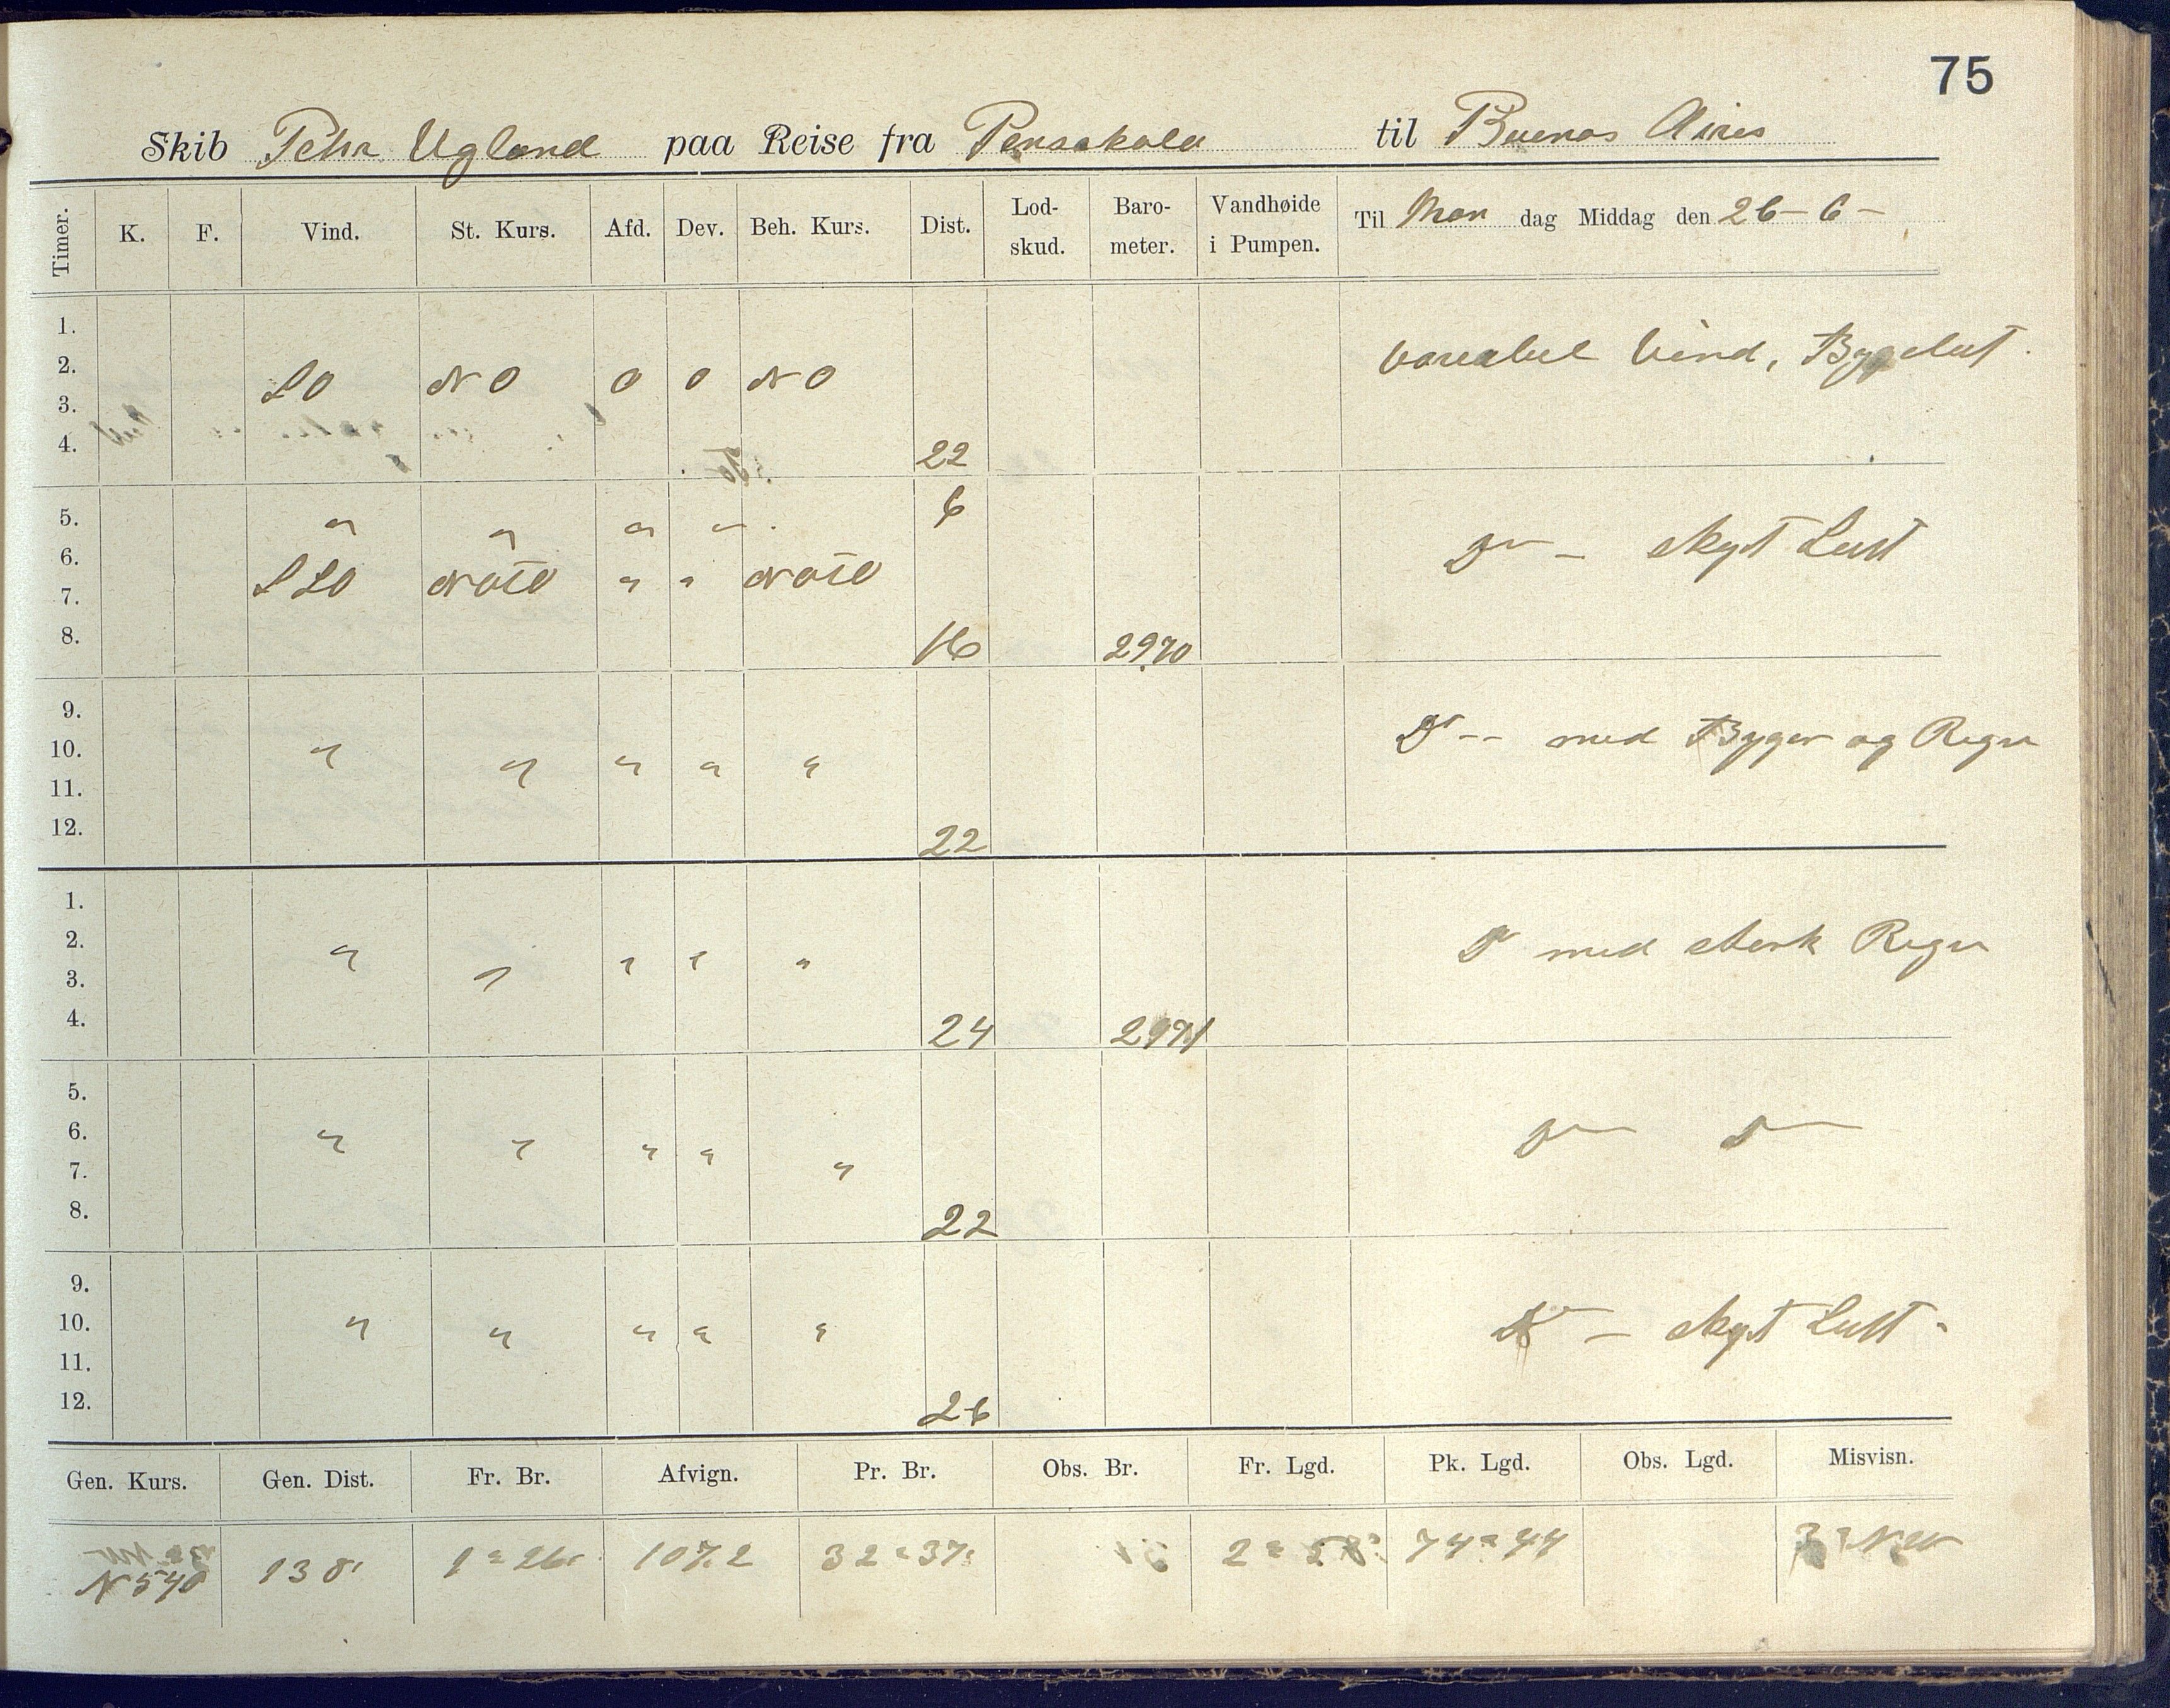 75
Skib Pehr Ugland paa Reise fra Pensakola til Buenos Aires
Timer. K. F. Vind. St. Kurs. Afd. Dev. Beh. Kurs. Dist. Lod-skud. Baro-meter. Vandhøide i Pumpen. Til Man dag Middag den 26-6-
1.
2. SO NO 0 0 NO Variabel Vind, Bygeluft.
3.
4. 22
5. " " " " 6
6. SSO NOtO " " NOtO Do — skyt Luft
7.
8. 16 2970
9.
10. " " " " " Do -- med Byger og Regn
11.
12. 22
1.
2. " " " " " Do med sterk Regn
3.
4. 24 2971
5.
6. " " " " " Do — Do —
7.
8. 22
9.
10. " " " " " Do — skyt Luft -
11.
12. 26
Gen. Kurs. Gen. Dist. Fr. Br. Afvign. Pr. Br. Obs. Br. Fr. Lgd. Pk. Lgd. Obs. Lgd. Misvisn.
N 54 O 138' 1° 26' 107.2 32° 37' 2° 58' 74° 44 3° NW